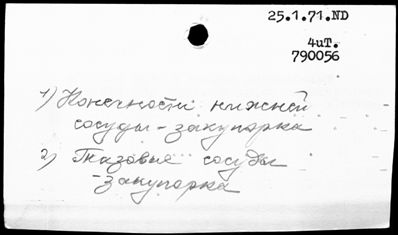 25.1.71.ND
4иТ.
790056
1) Конечности нижней
сосуды - закупорка
2) Тазовые сосуды
- закупорка